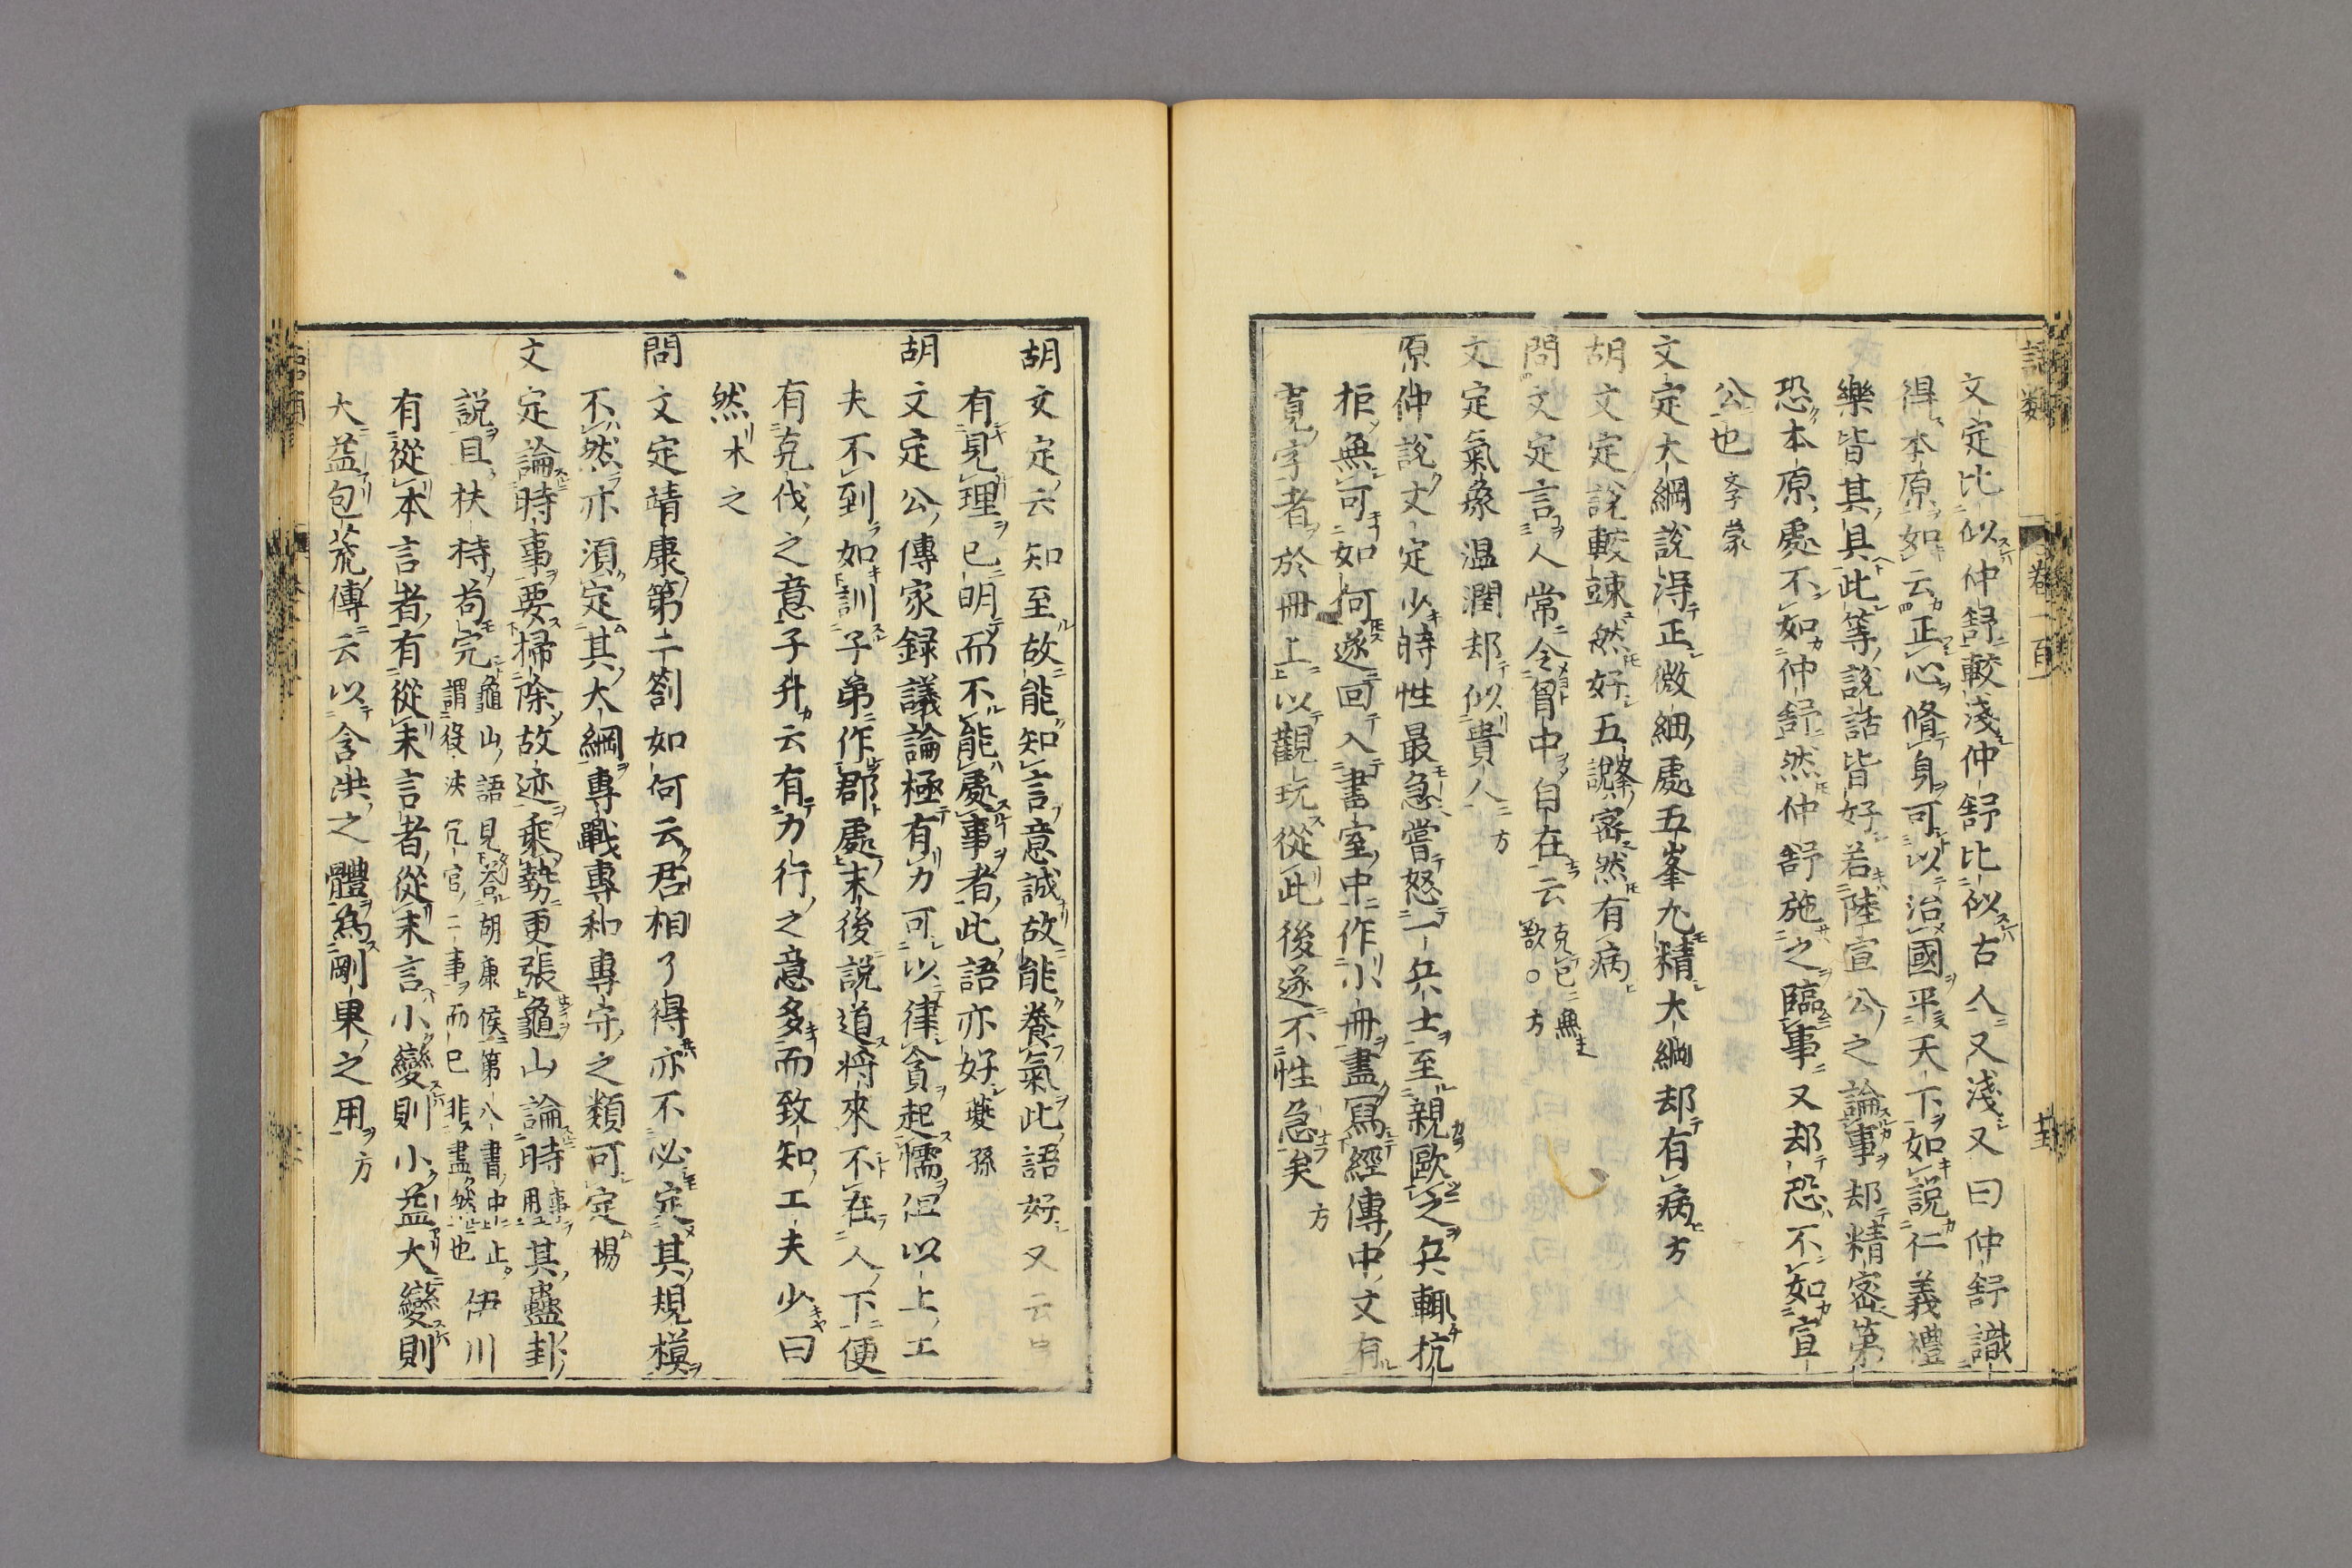 語類
卷一百一
文定比似仲舒較淺仲舒比似古人又淺又曰仲舒識
得本原如云正心脩身可以治國平天下如說仁義禮
樂皆其具此等說話皆好若陸宣公之論事却精密第
恐本原處不如仲舒然仲舒施之臨事又却恐不如宣
公也 孝蒙
文定大綱說得正微細處五峯尤精大綱却有病 方
胡文定說較疎然好五峯說密然有病
問文定言人常令胷中自在云克己無欲○方
文定氣象温潤却似貴人 方
原仲說文定少時性最急嘗怒一兵士至親歐之兵輒抗
拒無可如何遂回入書室中作小冊盡寫經傳中文有
寬字者於冊上以觀玩從此後遂不性急矣 方
胡文定云知至故能知言意誠故能養氣此語好又云
有見理已明而不能處事者此語亦好 夔孫
胡文定公傳家録議論極有力可以律貪起懦但以上工
夫不到如訓子弟作郡處末後說道將來不在人下便
有克伐之意子升云有力行之意多而致知工夫少曰
然 木之
問文定靖康第二劄如何云君相了得亦不必定其規模
不然亦須定其大綱專戰專和專守之類可定 楊
文定論時事要掃除故迹乘勢更張龜山論時事用其蠱卦
說且扶持苟完 龜山語見答胡康侯第八書中止
謂役法冗官二事而已非盡然也 伊川
有從本言者有從末言者從末言小變則小益大變則
大益包荒傳云以含洪之體為剛果之用 方